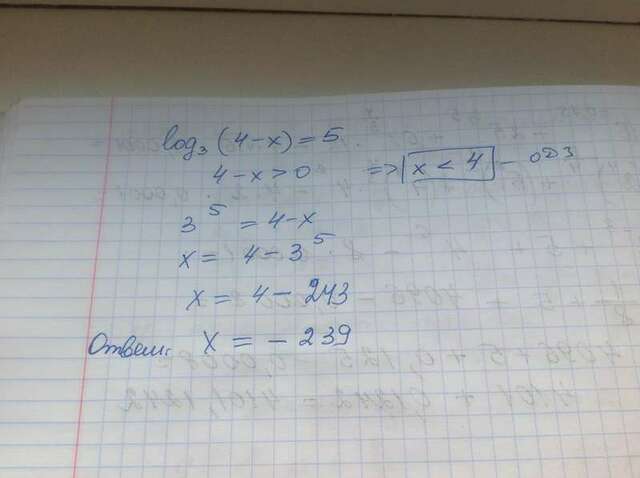 log₃ (4-x) = 5
4-x>0 => x < 4 - ОДЗ
3⁵ = 4-x
x = 4-3⁵
x = 4-243
Ответ: x = -239